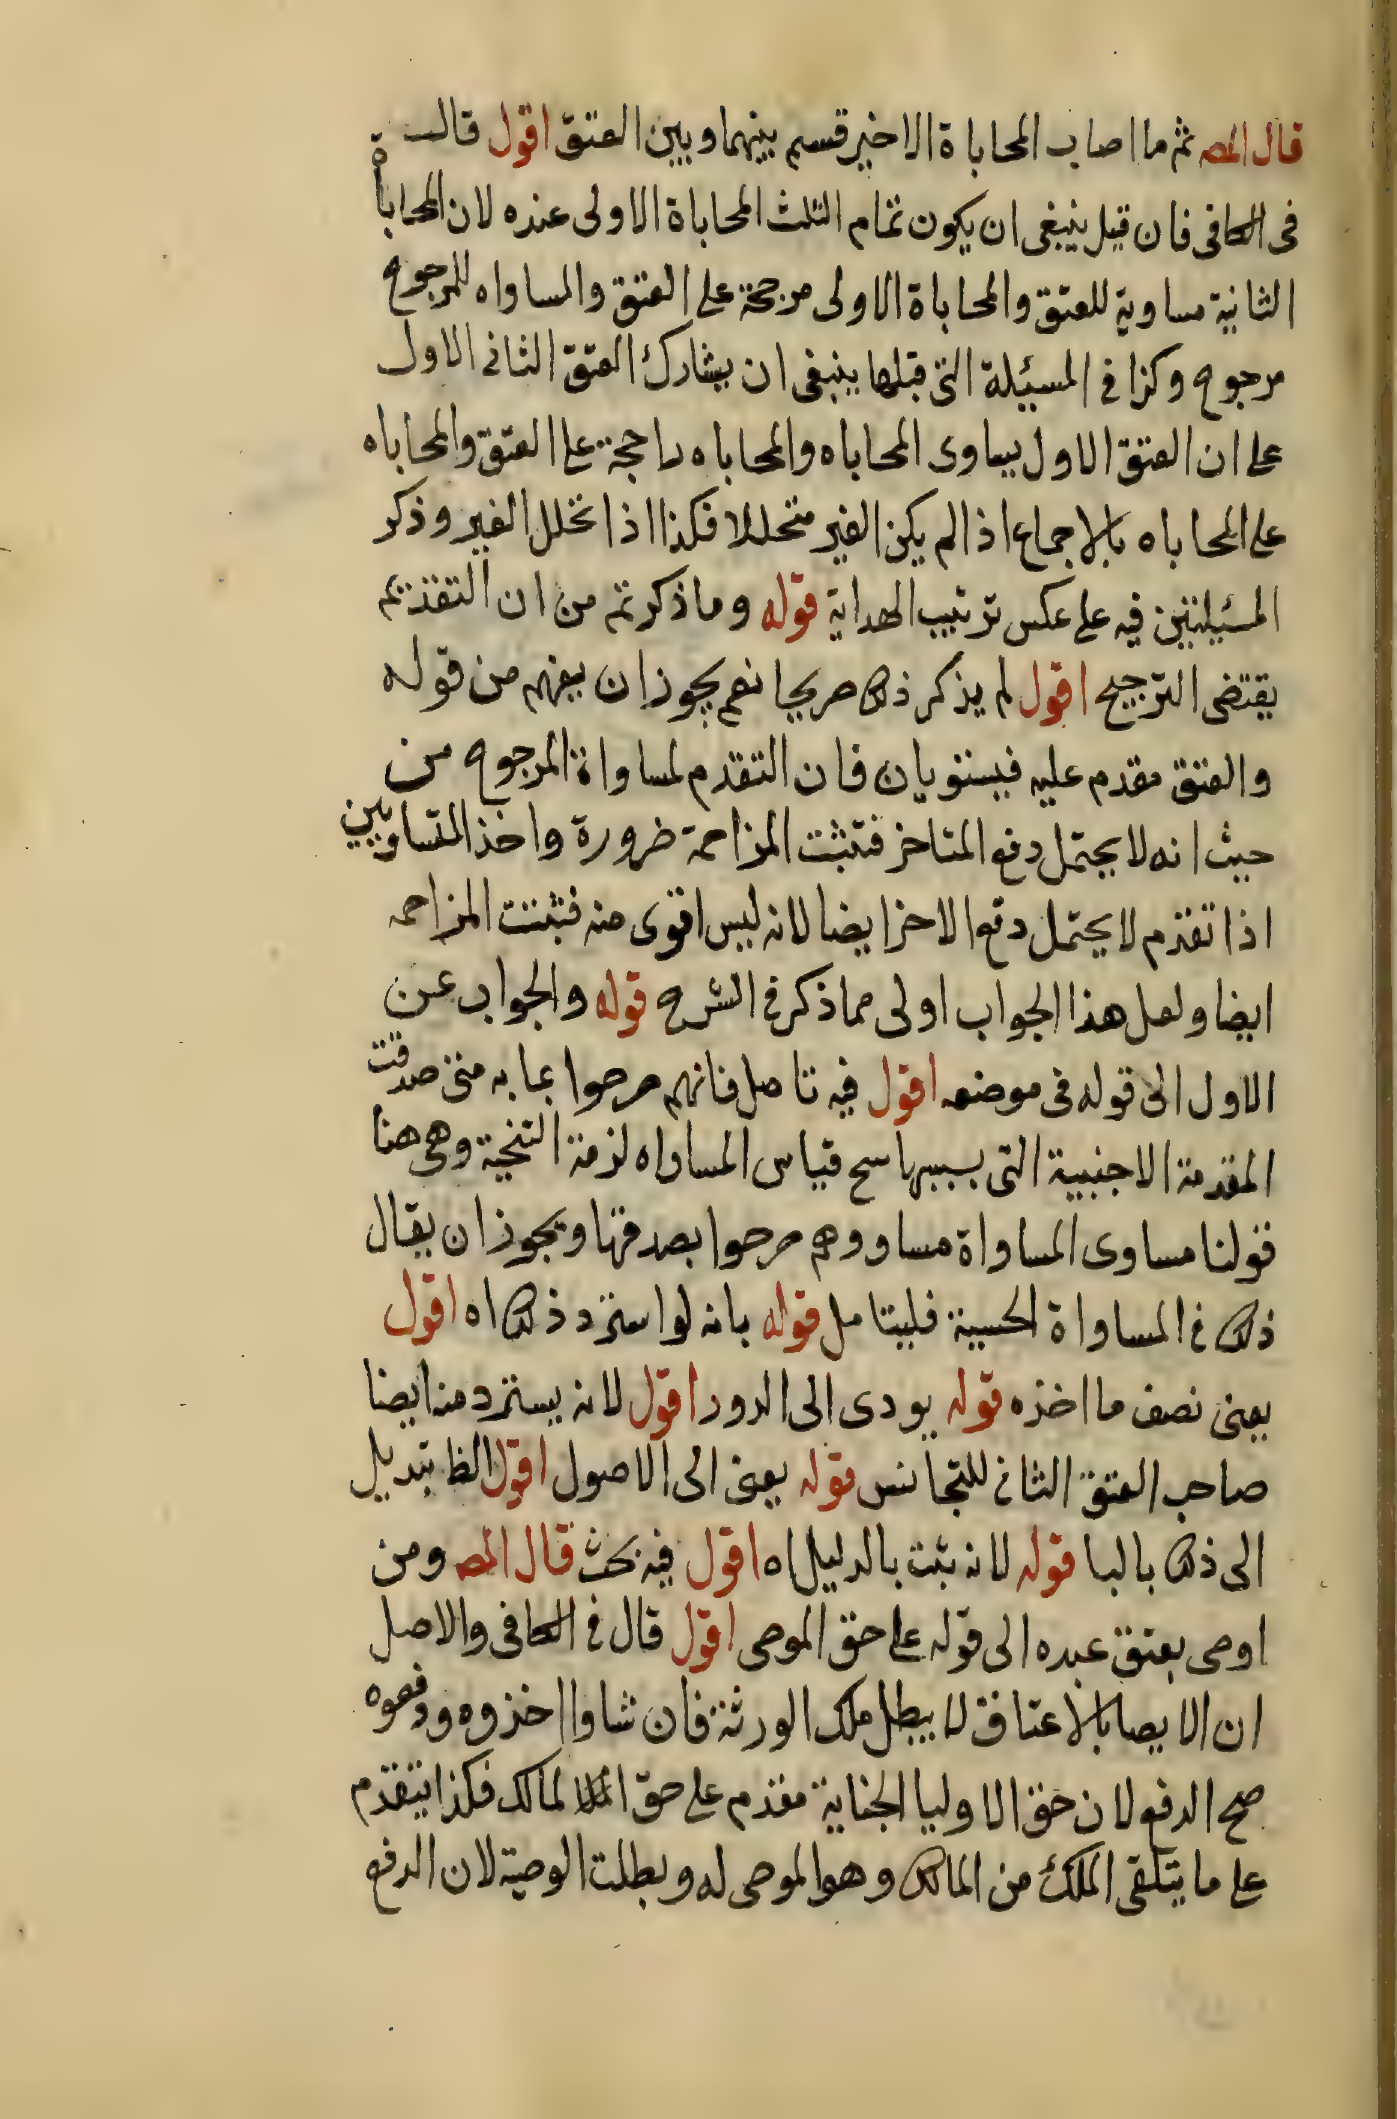 قال المص ثم ما اصاب المحاباة الاخير قسم بينهما وبين العتق اقول قال
فى الكافى فان قيل ينبغى ان يكون تمام الثلث المحاباة الاولى عنده لان المحاباة
الثانية مساوية للعتق والمحاباة الاولى مرجحة على العتق والمساواه للمرجوح
مرجوح وكذا فى المسئيلة التى قبلها ينبغى ان يشارك العتق الثانى الاول
على ان العتق الاول يساوى المحاباه والمحاباه راجحة على العتق والمحاباه
على المحاباه بالاجماع اذا لم يكن الغير متحللا فكذا اذا تخلل الغير وذكر
المسئيلتين فيه على عكس ترتيب الهداية قوله وما ذكر ثم من ان التقديم
يقتضى الترجيح اقول لم يذكر ذلك صريحا نعم يجوز ان يفهم من قوله
والعتق مقدم عليه فيستويان فان التقدم لمساواة المرجوح من
حيث انه لا يحتمل دفع المتاخر فتثبت المزاحمة ضرورة واخذ المتساويين
اذا تقدم لا يحتمل دفع الاخر ايضا لانه ليس اقوى منه فثبتت المزاحمه
ايضا ولعل هذا الجواب اولى مما ذكر فى الشرح قوله والجواب عن
الاول الى قوله فى موضعه اقول فيه تامل فانهم صرحوا بما به متى صدقت
المقدمة الاجنبية التى بسببها سح قياس المساواه لزمة النتجية وهى هنا
قولنا مساوى المساواة مساو وهم صرحوا بصدقها ويجوز ان يقال
ذلك فى المساواة الحسية فليتامل قوله بانه لو استرد ذلك اه اقول
يعنى نصف ما اخذه قوله يودى الى الدور اقول لانه يسترد منه ايضا
صاحب العتق الثانى للتجانس قوله يعنى الى الاصول اقول الظ تبديل
الى ذلك بالبا قوله لانه ثبت بالدليل اه اقول فيه بحث قال المص ومن
اوصى بعتق عبده الى قوله على حق الموصى اقول قال فى الكافى والاصل
ان الايصا بالاعتاق لا يبطل ملك الورثة فان شاوا اخذوه ودفعوه
صح الدفع لان حق الاوليا الجناية مقدم على حق المالك فكذا يتقدم
على ما يتلقى الملك من المالك وهو الموصى له وبطلت الوصية لان الدفع